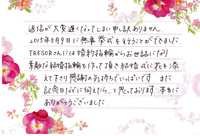 返信が大変遅くなってしまい申し訳ありません。
2015年5月9日に無事挙式を行うことができました。
TRESORさんには婚約指輪からお世話になり
素敵な結婚指輪を作って頂き結婚式に花を添
えて下さり感謝の気持ちでいっぱいです。また
記念日などに伺えたら…と思っております。本当に
ありがとうございました。